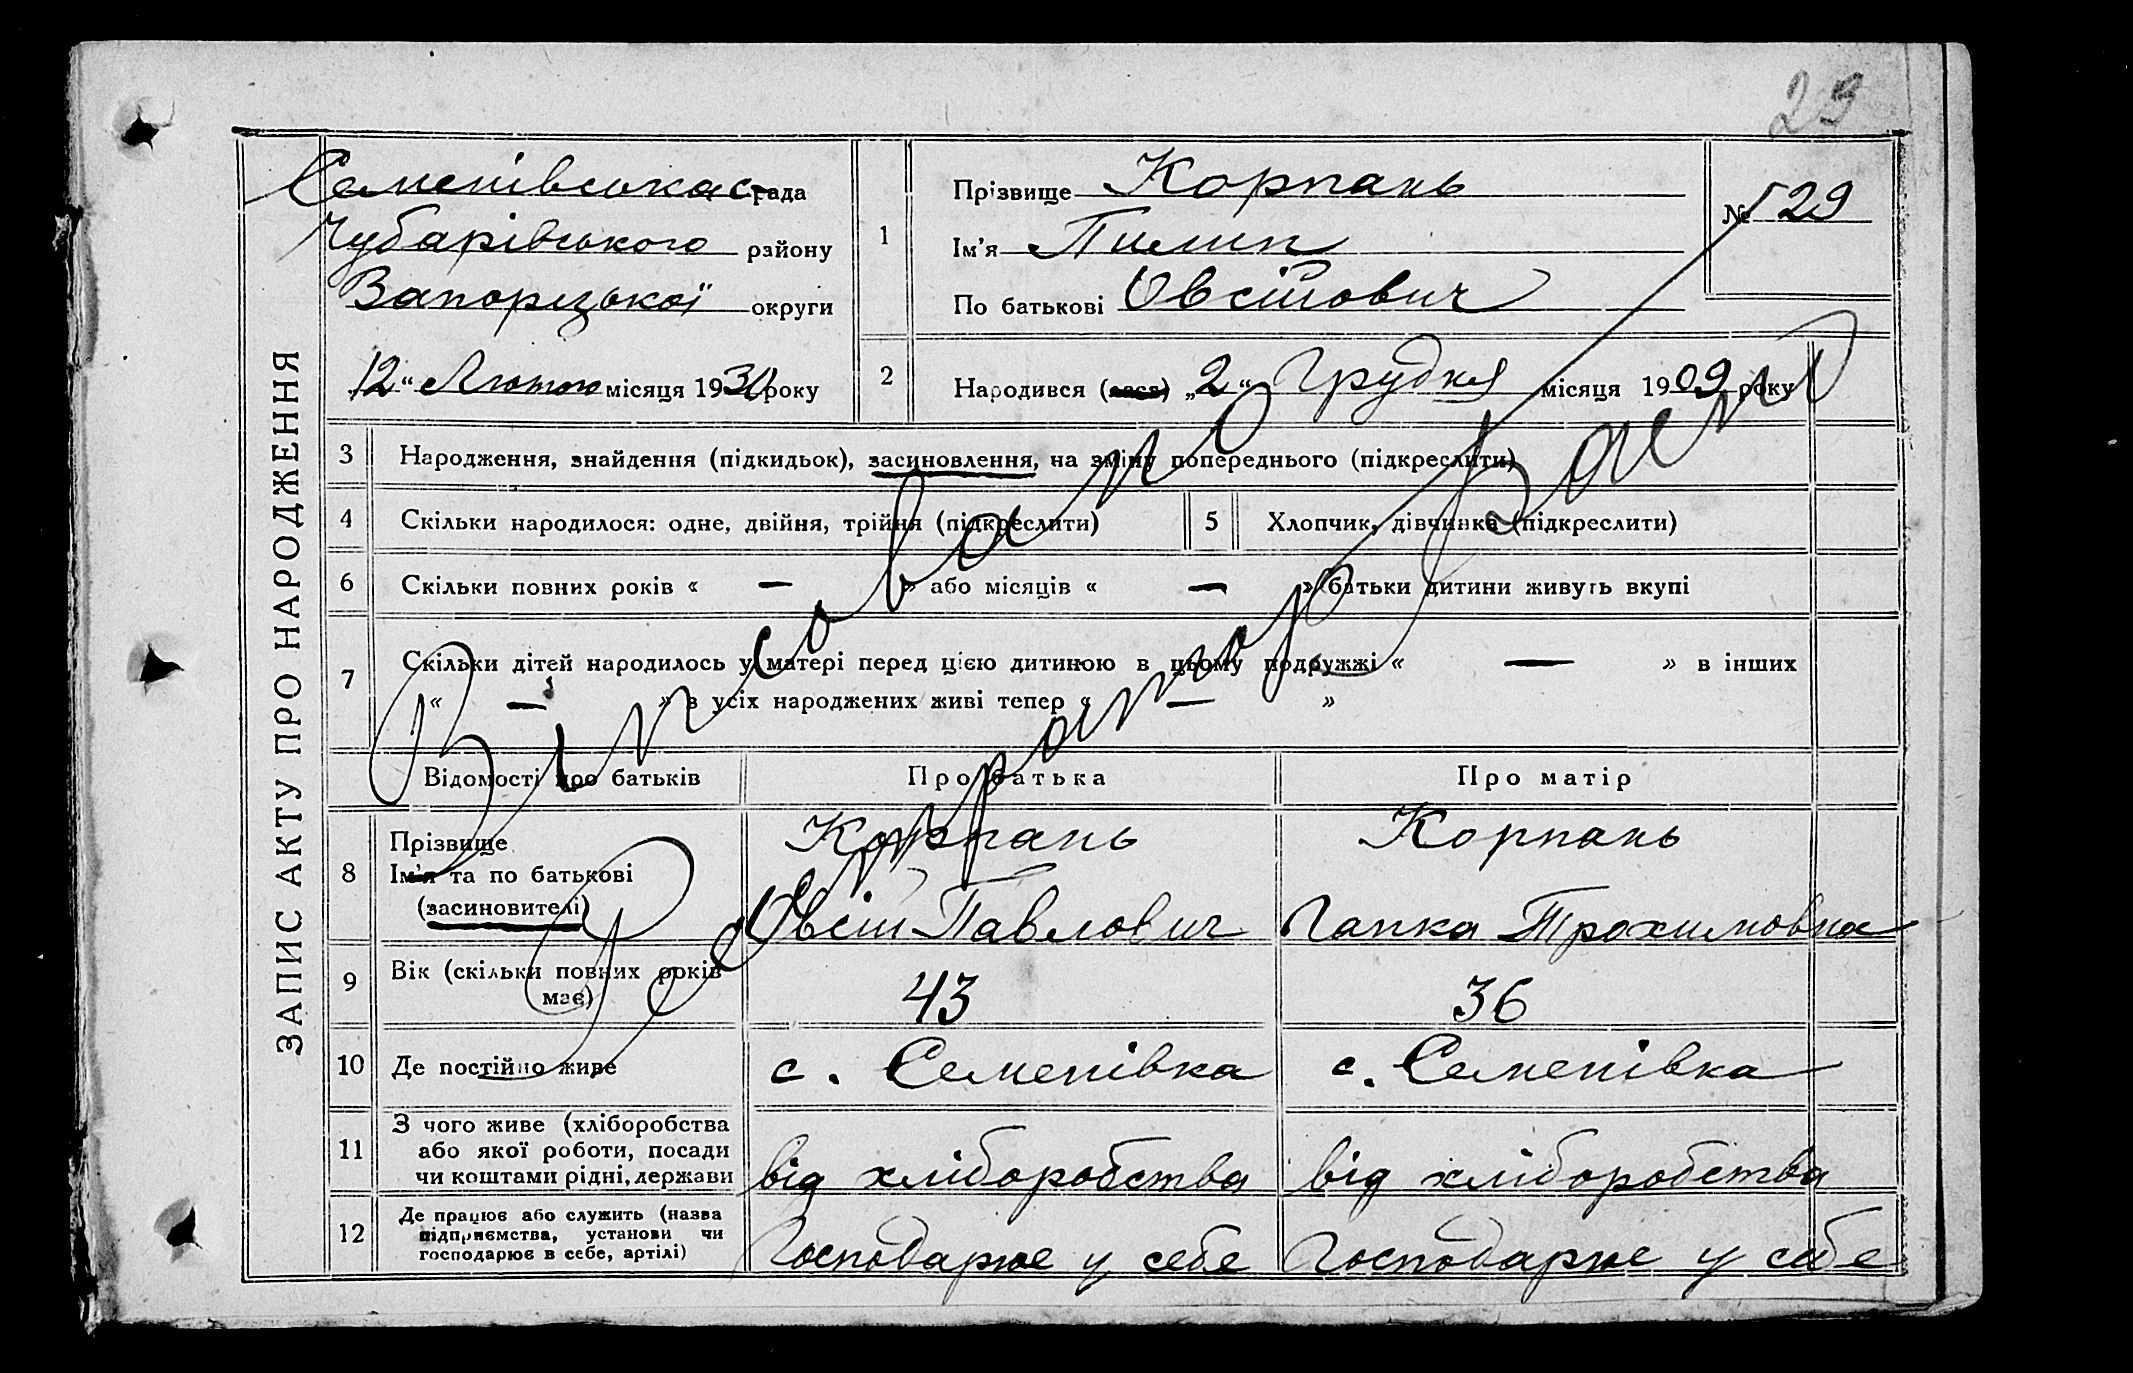 29
ЗАПИС АКТУ ПРО НАРОДЖЕННЯ
Семенівська с-рада
Чубарівського району
Запорізької округи
12 “ Лютого місяця 1930 року
1
Прізвище Корпань
Ім’я Пилип
По батькові Овсійович
№ 29
2
Народився (лася) „2“ Грудня місяця 1909 року
3 Народження, знайдення (підкидьок), засиновлення, на зміну попереднього (підкреслити)
4 Скільки народилося: одне, двійня, трійня (підкреслити) 5 Хлопчик, дівчинка (підкреслити)
6 Скільки повних років « — » або місяців « — » батьки дитини живуть вкупі
7 Скільки дітей народилось у матері перед цією дитиною в цьому подружжі « — » в інших
« — » з усіх народжених живі тепер « — »
Відомості про батьків Про батька Про матір
8 Прізвище
Ім’я та по батькові
(засиновителі)
Корпань
Овсій Павлович
Корпань
Гапка Трохимовна
9 Вік (скільки повних років
має)
43 36
10 Де постійно живе с. Семенівка с. Семенівка
11 З чого живе (хліборобства
або якої роботи, посади
чи коштами рідні, держави
від хліборобства від хліборобства
12 Де працює або служить (назва
підприємства, установи чи
господарює в себе, артілі)
Господарює у себе Господарює у себе